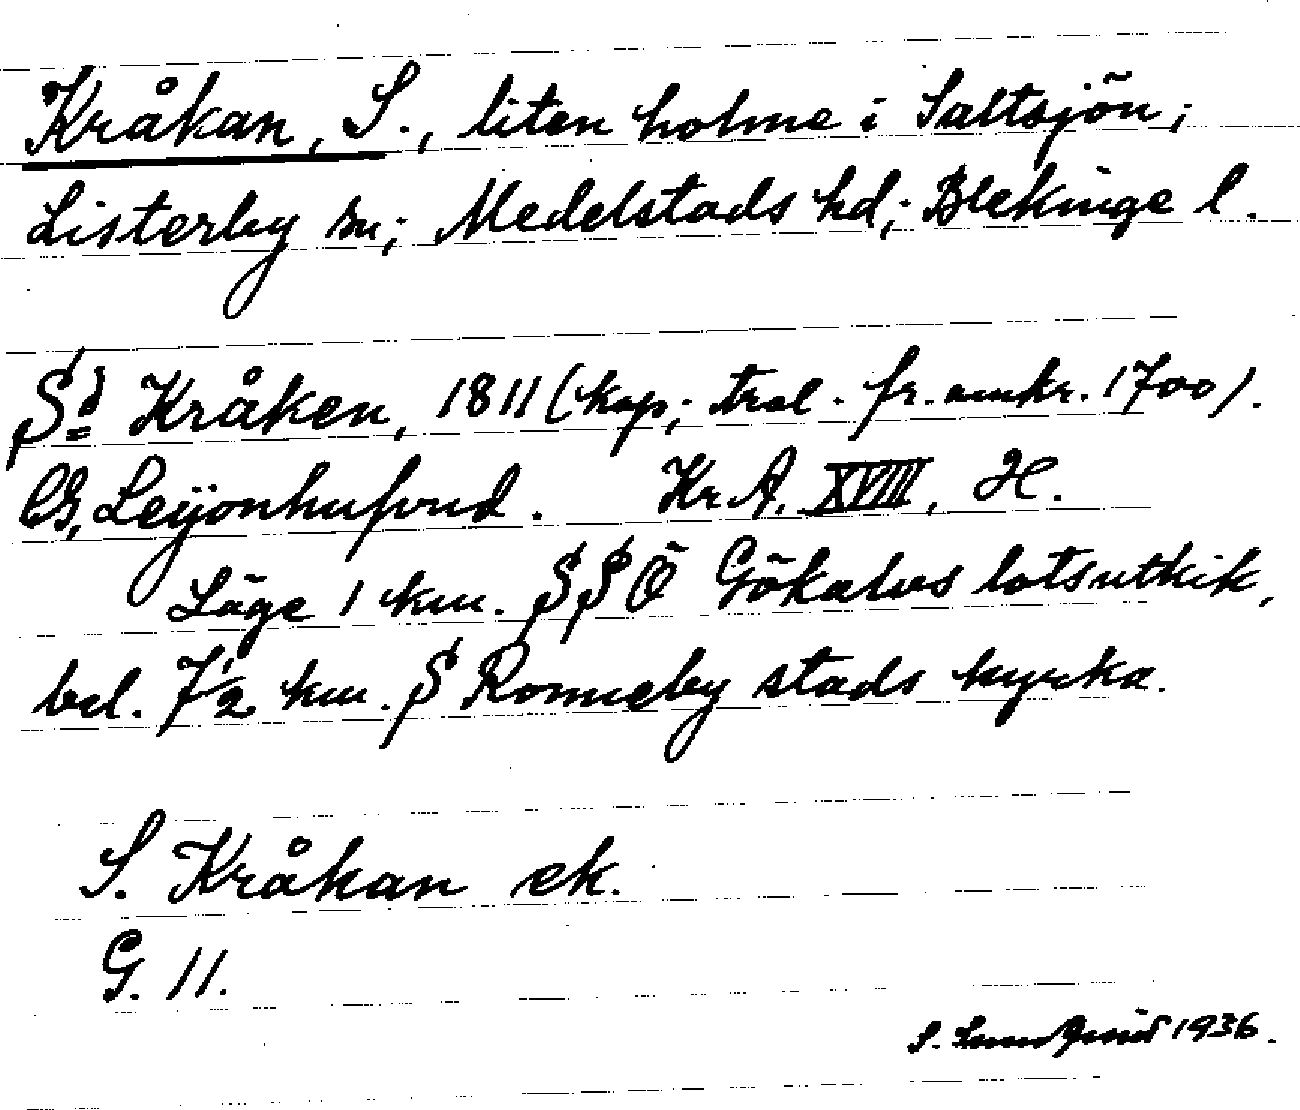 Kråkan, S., liten holme i Saltsjön;
Listerby sn; Medelstads hd; Blekinge l.
Sd Kråken, 1811 (kop; trol. fr. omkr. 1700).
CG, Leÿonhufvud. Kr A. XVIII, H.
Läge 1 km. SSÖ Gökalvs lotsutkik,
bel. 7 1/2 km. S Ronneby stads kyrka.
S. Kråkan ek.
G. 11.
S. 1936.